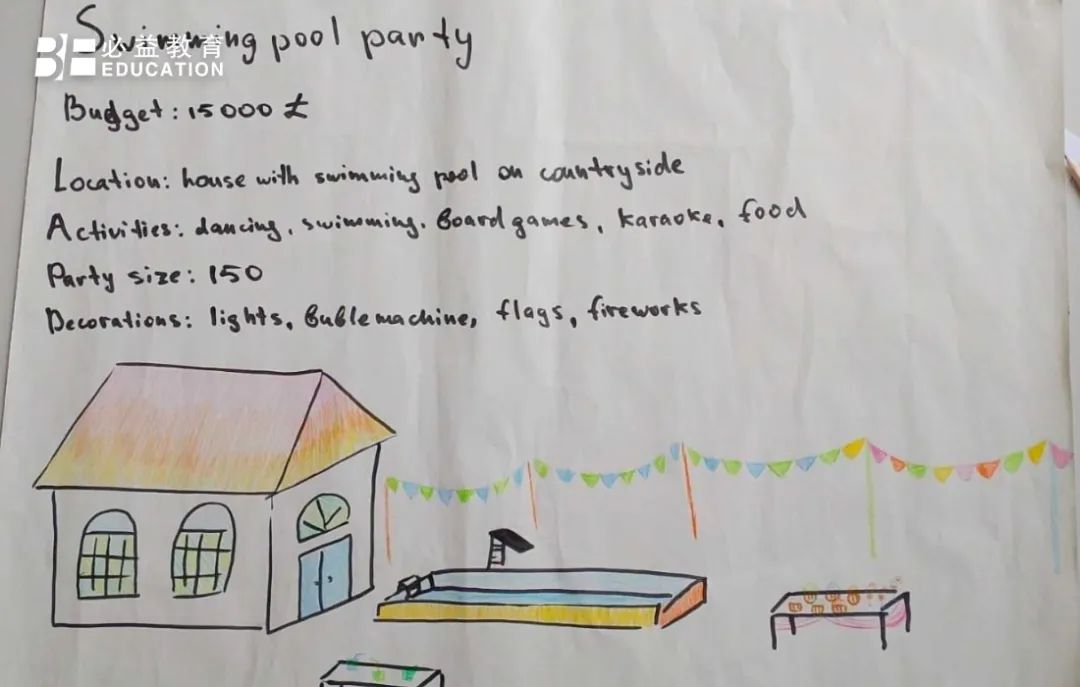 Swimming pool party
必益教育
EDUCATION
Budget: 15000 £
Location: house with swimming pool on countryside
Activities: dancing, swimming, Board games, karaoke, food
Party size: 150
Decorations: lights, buble machine, flags, fireworks